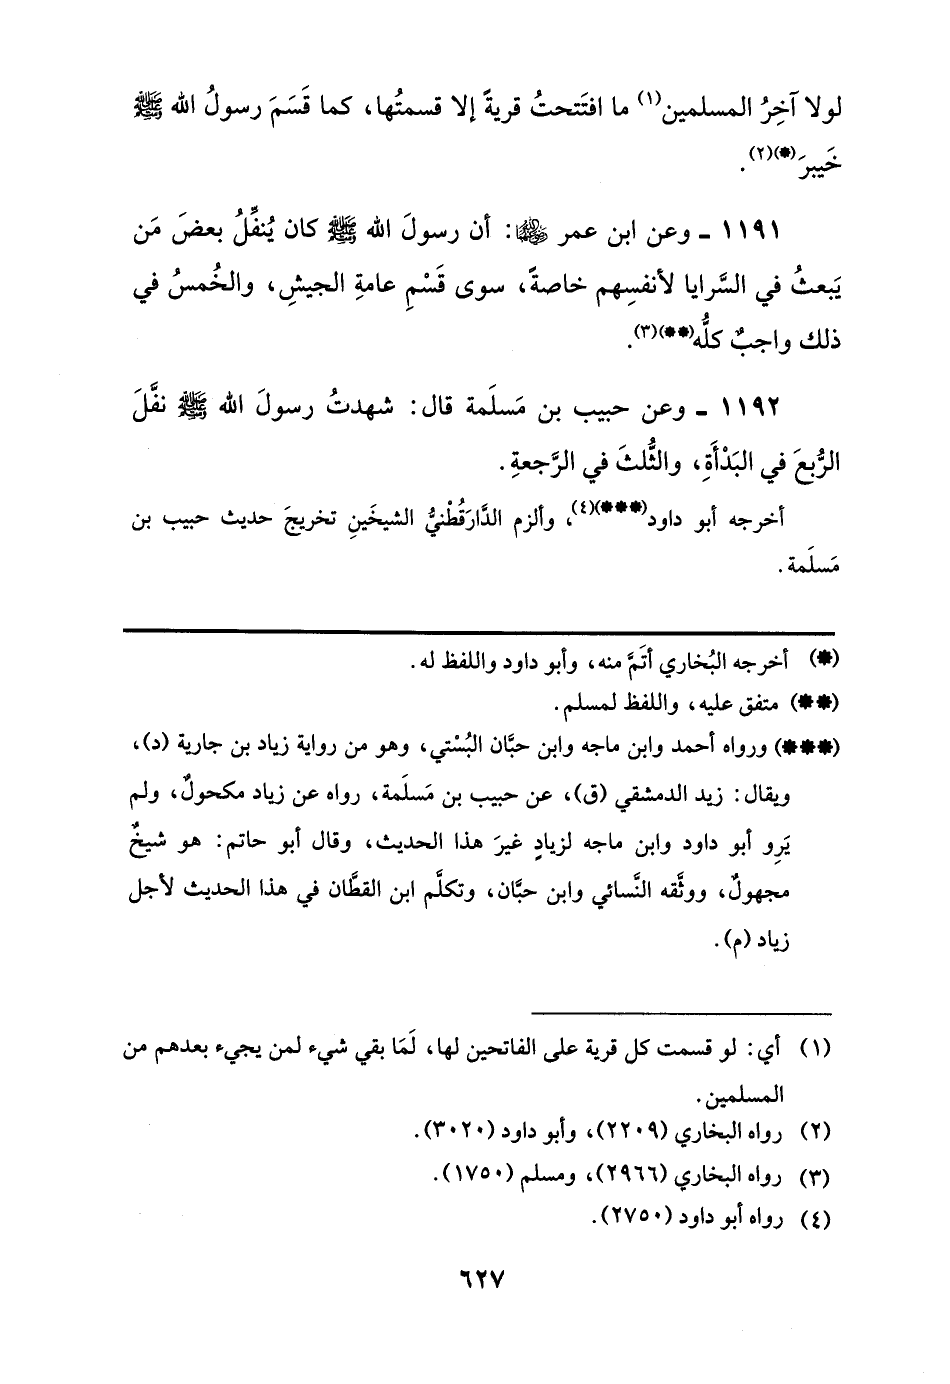 لولا آخِرُ المسلمين(١) ما افتَتحتُ قريةً إلا قسمتُها، كما قَسَمَ رسولُ الله ﷺ
خَيبرَ(*)(٢).
١١٩١ ـ وعن ابن عمر رضي الله عنهما: أن رسولَ الله ﷺ كان يُنفِّلُ بعضَ مَن
يَبعثُ في السَّرايا لأنفسِهم خاصةً، سوى قَسْمِ عامةِ الجيشِ، والخُمسُ في
ذلك واجبٌ كلُّه(**)(٣).
١١٩٢ ـ وعن حبيب بن مَسلَمة قال: شهدتُ رسولَ الله ﷺ نفَّلَ
الرُّبعَ في البَدْأَةِ، والثُّلثَ في الرَّجعةِ.
أخرجه أبو داود(***)(٤)، وألزم الدَّارَقُطْنيُّ الشيخَينِ تخريجَ حديث حبيب بن
مَسلَمة.
(*) أخرجه البُخاري أتَمَّ منه، وأبو داود واللفظ له.
(**) متفق عليه، واللفظ لمسلم.
(***) ورواه أحمد وابن ماجه وابن حبَّان البُسْتي، وهو من رواية زياد بن جارية (د)،
ويقال: زيد الدمشقي (ق)، عن حبيب بن مَسلَمة، رواه عن زياد مكحولٌ، ولم
يَرِو أبو داود وابن ماجه لزيادٍ غيرَ هذا الحديث، وقال أبو حاتم: هو شيخٌ
مجهولٌ، ووثَّقه النَّسائي وابن حبَّان، وتكلَّم ابن القطَّان في هذا الحديث لأجل
زياد (م).
(١) أي: لو قسمت كل قرية على الفاتحين لها، لَمَا بقي شيء لمن يجيء بعدهم من
المسلمين.
(٢) رواه البخاري (٢٢٠٩)، وأبو داود (٣٠٢٠).
(٣) رواه البخاري (٢٩٦٦)، ومسلم (١٧٥٠).
(٤) رواه أبو داود (٢٧٥٠).
٦٢٧